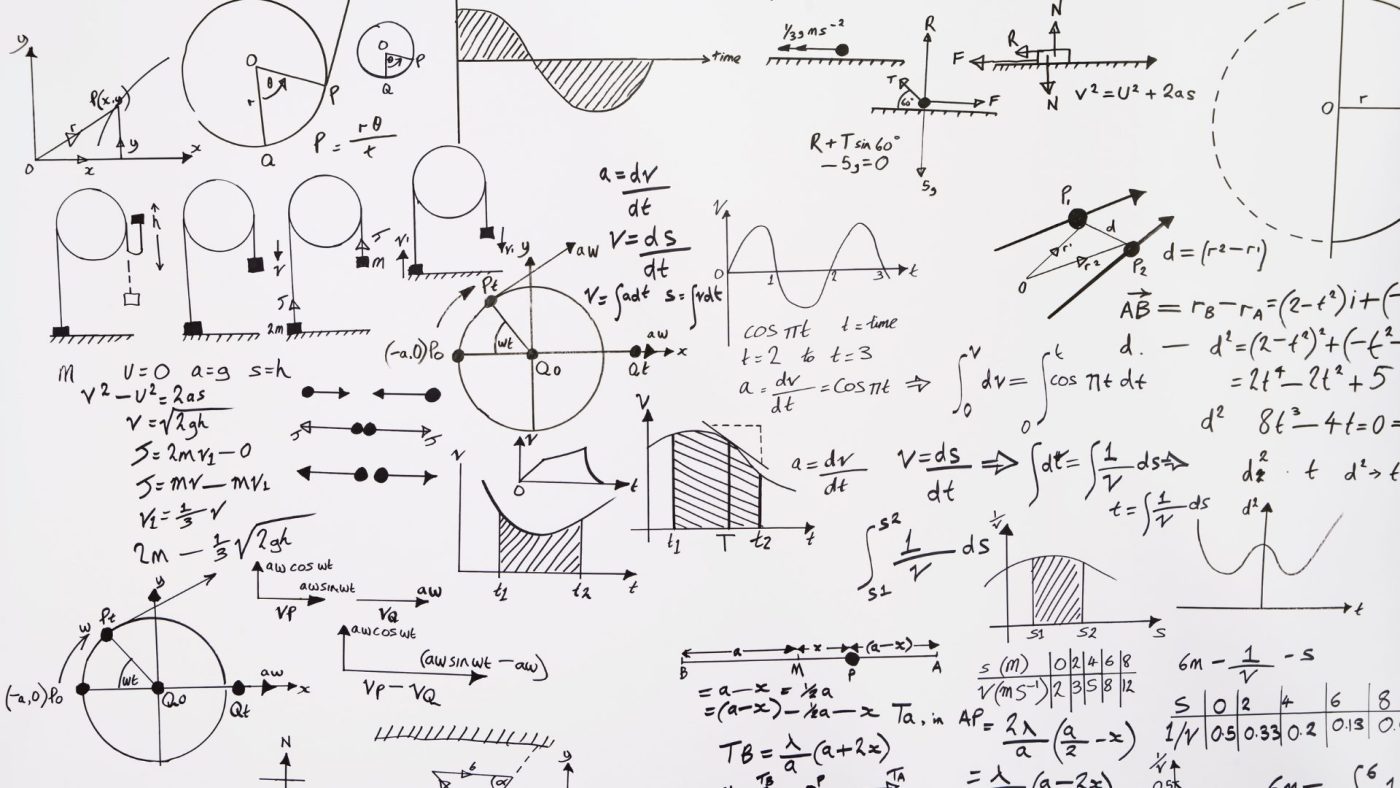 y
P(x,y)
r
y
O
x
x
O
θ
r
P
Q
O
θ
P
Q
P = rθ/t
time
1/3g ms⁻²
R
T R
60°
F
5g
R + T sin 60°
– 5g = 0
N
R
F
N
v² = U² + 2as
O
r
h
v
J
m
J
2m
v₁
v₁
a = dv/dt
v = ds/dt
v = ∫adt s = ∫vdt
y
aw
Pt
wt
(-a,0) P₀
Q₀
aw
Qt
x
V
O
1
2
3
t
cos πt t = time
t = 2 to t = 3
a = dv/dt = cos πt ⇒ ∫₀ᵛ dv = ∫₀ᵗ cos πt dt
P₁
d
r¹
r²
P₂
O
d = (r² – r¹)
AB = rB – rA = (2 – t²)i + (-
d. — d² = (2 – t²)² + (-t²-
= 2t⁴ – 2t² + 5
d² 8t³ – 4t = 0 =
d² . t d² → t
M U = 0 a = g s = h
v² – U² = 2as
v = √2gh
J = 2mv₁ – 0
J = mv – mv₁
v₁ = 1/3 v
2m – 1/3 √2gh
J
J
v
t₁
t₂
t
v
O
t
V
t₁
T
t₂
t
a = dv/dt
v = ds/dt ⇒ ∫dt = ∫1/v ds ⇒
t = ∫1/v ds
∫ s2 s1 1/v ds
1/v
S1
S2
s
d²
t
y
w
Pt
wt
(-a,0) P₀
Q₀
aw
Qt
x
aw cos wt
aw sin wt
VP
aw
VQ
aw cos wt
(aw sin wt – aw)
VP – VQ
a
x
(a – x)
B
M
P
A
= a – x = ½a
= (a – x) – ½a – x
Ta, in AP = 2λ/a (a/2 – x)
TB = λ/a (a + 2x)
= λ/a (a – 2x)
TB
P
TA
s (m) 0 2 4 6 8
v (ms⁻¹) 2 3 5 8 12
6m – 1/v – s
S 0 2 4 6 8
1/v 0.5 0.33 0.2 0.13 0.
1/v
6m –
6
N
y
6
α